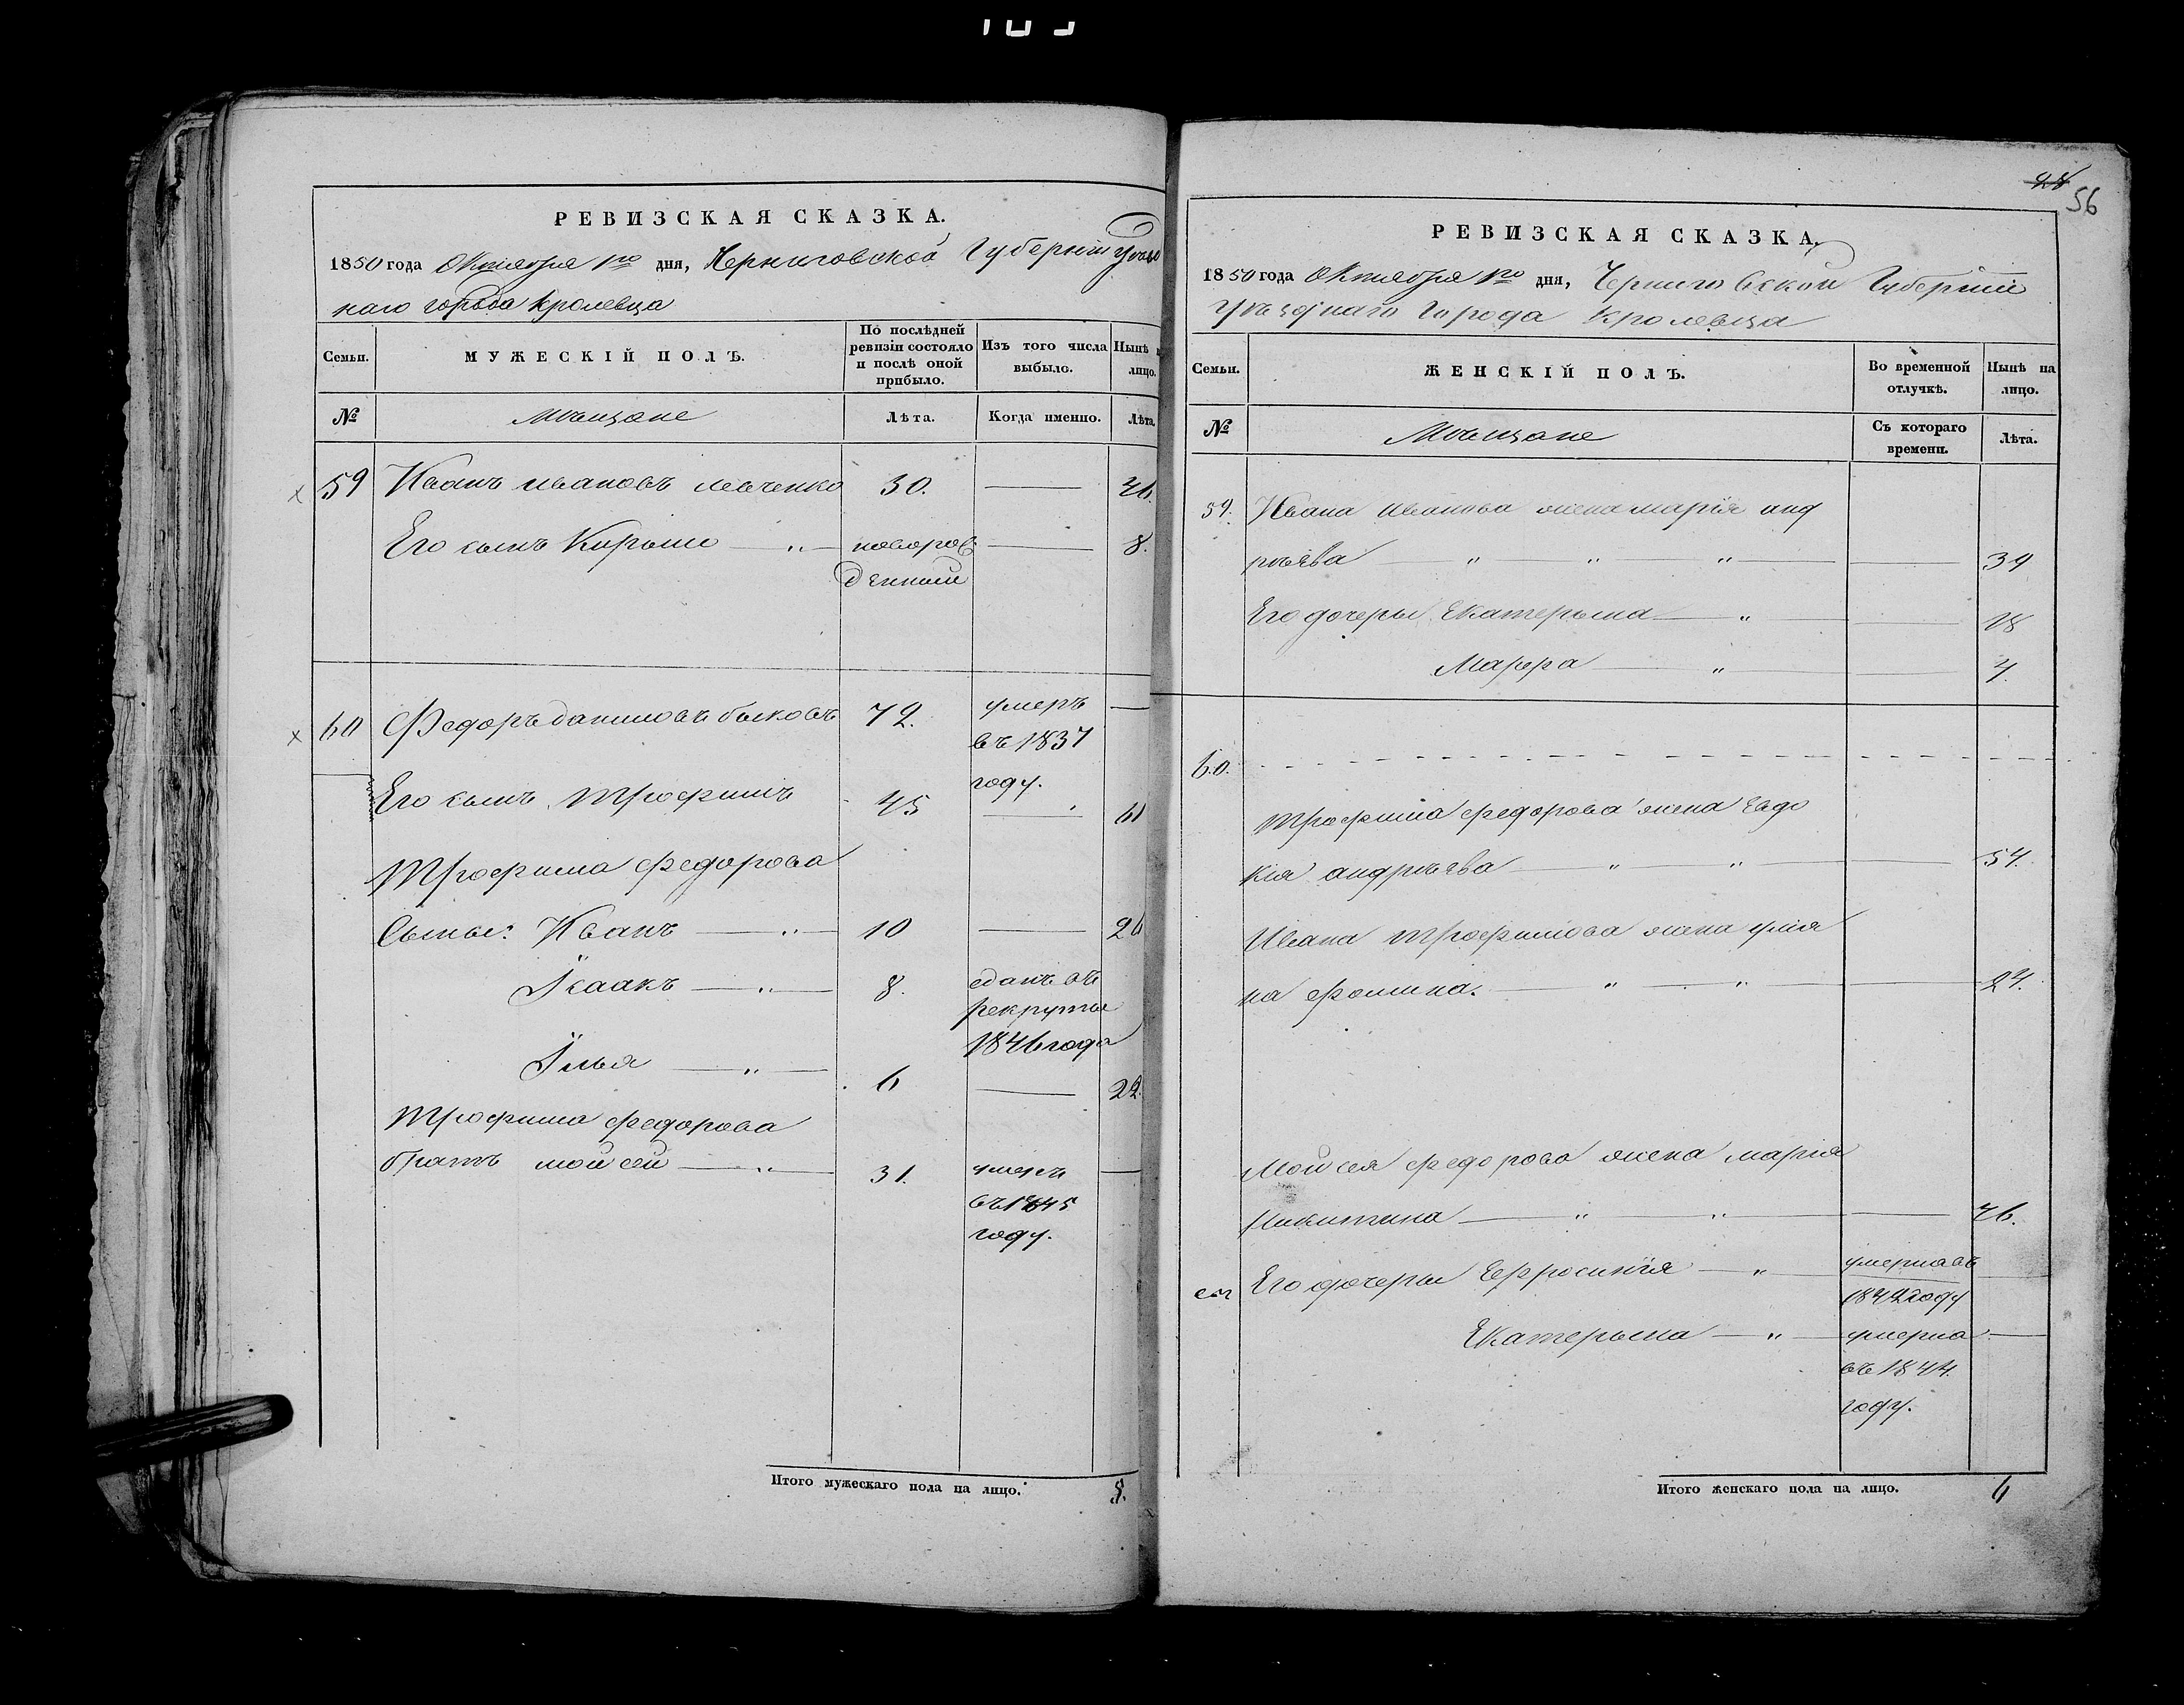 РЕВИЗСКАЯ СКАЗКА.
1850 года Октября 1го дня, Черниговской Губернiи уѣзд
наго города Кролевца
Семьи.
МУЖЕСКIЙ ПОЛЪ.
По послѣдней ревизiи состояло и послѣ оной прибыло.
Изъ того числа выбыло.
Нынѣ
лицо.
№
Мѣщане
Лѣта.
Когда именно.
Лѣта.
59 Иванъ Ивановъ Левченко 30. 46.
Его сынъ Кирыло новорож
денный 8.
60 Федоръ Даниловъ быковъ 72. умеръ
въ 1837
году.
Его сынъ Трофимъ 45 61
Трофима Федорова
Сыны: Иванъ 10 26
Iсаакъ 8. сданъ въ
рекруты
1846 года
Iлья 6 22.
Трофима Федорова
братъ Мойсей 31. умеръ
въ 1845
году.
Итого мужескаго пола на лицо. 5.
56
РЕВИЗСКАЯ СКАЗКА.
1850 года Октября 1го дня, Черниговской Губернiи
Уѣзднаго Города Кролевца
Семьи.
ЖЕНСКIЙ ПОЛЪ.
Во временной отлучкѣ.
Нынѣ на лицо.
№
Мѣщане
Съ котораго времени.
Лѣта.
59. Ивана Иванова жена марiя анд
рѣева 39
Его дочеры Екатерына 18
Марфа 4.
60.
Трофима федорова жена Евдо
кiя андрѣева 54.
Ивана Трофимова жена улiя
на Фомина. 24.
Мойсея федорова жена марiя
Никитина 46.
Его дочеры Ефросинiя умерла въ
1842 году
Екатерына умерла
въ 1844.
году.
Итого женскаго пола на лицо. 6